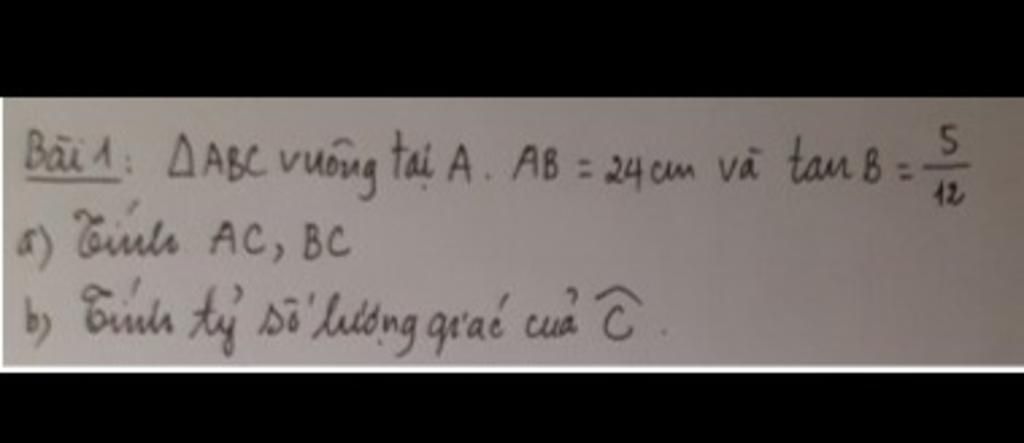 Bài 1: ΔABC vuông tại A. AB = 24cm và tan B = 5/12
a) Tính AC, BC
b) Tính tỷ số lượng giác của Ĉ.